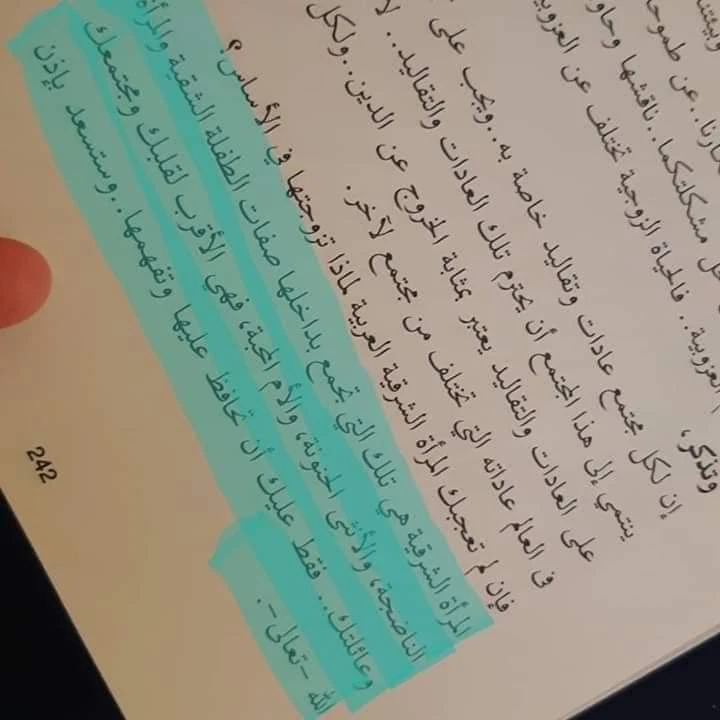 وبيئتنا
عن طموحا
مشكلتكما..ناقشها وحاو
العزوبية.. فالحياة الزوجية تختلف عن العزوبي
وتذكر،
إن لكل مجتمع عادات وتقاليد خاصة به..ويجب على
ينتمي إلى هذا المجتمع أن يحترم تلك العادات والتقاليد..
على العادات والتقاليد يعتبر بمثابة الخروج عن الدين..ولكل
في العالم عاداته التي تختلف من مجتمع لآخر.
فإن لم تعجبك المرأة الشرقية العربية لماذا تزوجتها في الأساس؟
المرأة الشرقية هي تلك التي تجمع بداخلها صفات الطفلة الشقية والمرأة
الناضجة، والأنثى الحنونة، والأم المحبة، فهي الأقرب لقلبك ومجتمعك
وعائلتك.. فقط عليك أن تحافظ عليها وتفهمها..وستسعد بإذن
الله -تعالى-.
242